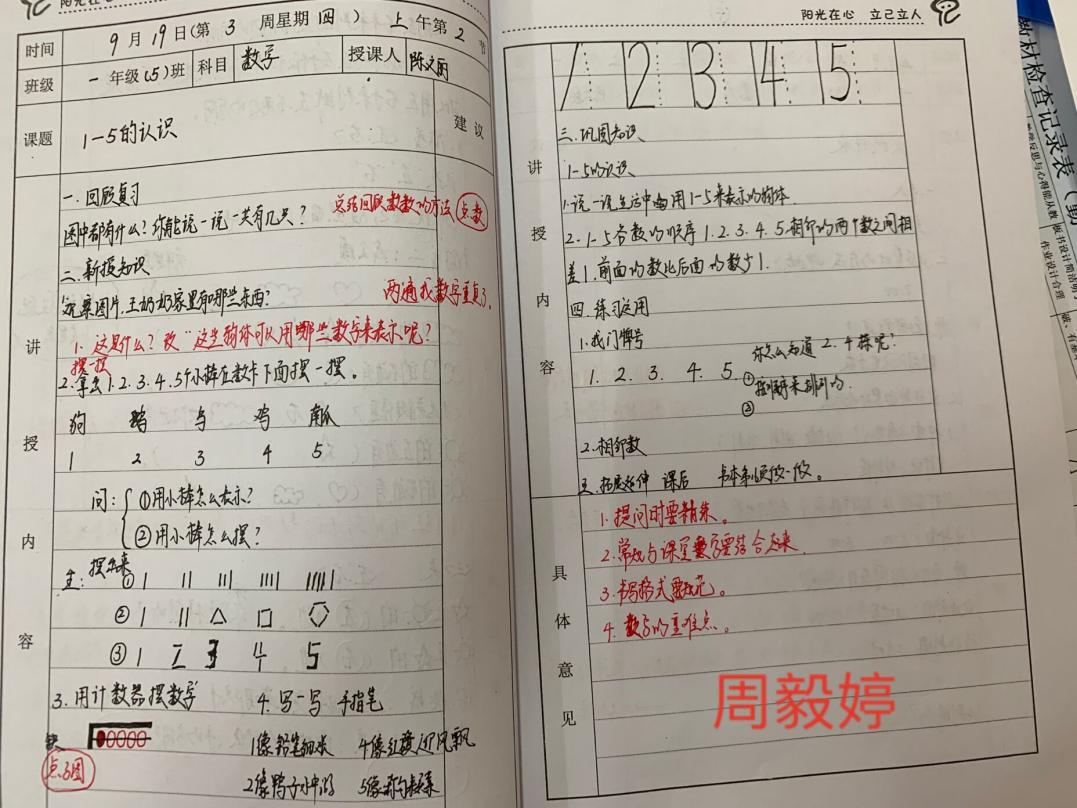 阳光在心
时间 9月19日(第3周星期四) 上午第2节
班级 一年级(5)班 科目 数学 授课人 陈文丽
课题 1-5的认识 建议
讲授内容
一.回顾复习
图中都有什么?你能说一说一共有几只?
总结回顾数数的方法 点数
二.新授知识
观察图片,王奶奶家里有哪些东西?
两遍找数字重复了.
1.这是什么?改"这些物体可以用哪些数字来表示呢?
摆一摆
2.拿出1.2.3.4.5个小棒在数卡下面摆一摆。
狗 鸭 鸟 鸡 南瓜
1 2 3 4 5
问: ①用小棒怎么表示?
②用小棒怎么摆?
生: 摆出来
①
②
③ 1 2 3 4 5
3.用计数器摆数字 4.写一写 手指笔
缺
点子图
1像铅笔细长 4像红旗迎风飘
2像鸭子水中游 5像称钩来称菜
阳光在心 立己立人
1 2 3 4 5
讲授内容
三.巩固知识
1-5的认识
1.说一说生活中会用1-5来表示的物体.
2.1-5各数的顺序1.2.3.4.5.相邻的两个数之间相
差1.前面的数比后面的数少1.
四.练习运用
1.找门牌号
1. 2. 3. 4. 5.
你怎么知道2.4栋呢!
①按顺序来排列的.
②
2.相邻数
五.拓展延伸 课后
具体意见
1.提问时要精练。
2.常规与课堂教学要结合起来.
3.书写格式要规范。
4.教学的重难点。
周毅婷
教材检查记录表